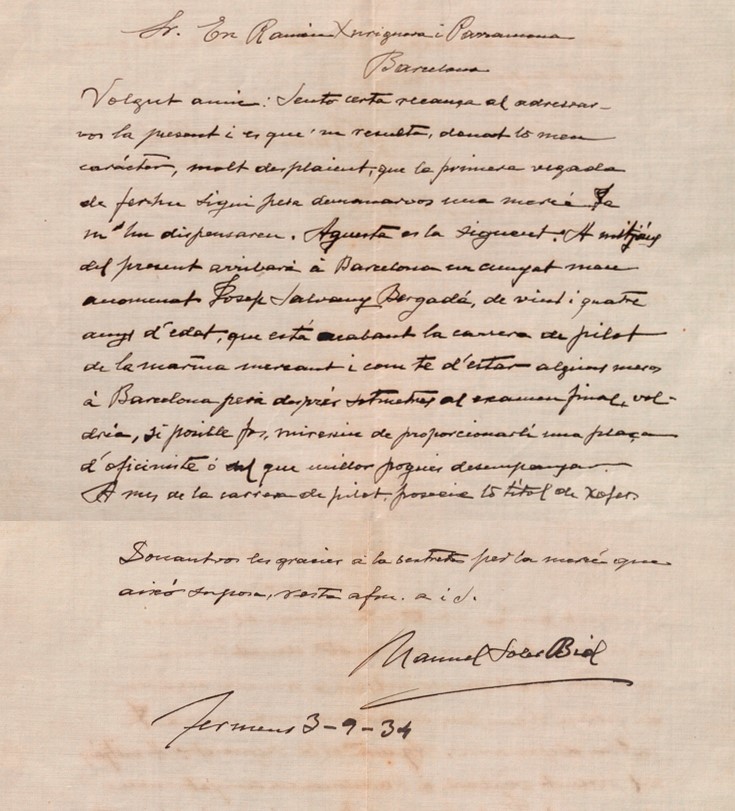 Sr. En Ramón Xuriguera i Parramona
Barcelona
Volgut amic: Sento certa recança al adressar-
vos la present i es que 'm resulta, donat lo meu
carácter, molt desplaient, que la primera vegada
de ferho sigui pera demanarvos una mercé. Ja
m' ho dispensareu. Aquesta es la siguent. A mitjáns
del present arribará á Barcelona un cunyat meu
anomenat Josep Salvany Bergadá, de vint i quatre
anys d'edat, que está acabant la carrera de pilot
de la marina mercant i com te d'estar alguns mesos
á Barcelona pera després sotmetres al examen final, vol-
dria, si posible fos, miressiu de proporcionarli una plaça
d'oficiniste ó del que millor pogues desempenyar.
A mes de la carrera de pilot, poseeix lo títol de xofer.
Donantvos les gracies á la bestreta per la mercé que
aixó suposa, resta afm. a i s.
Manuel Soler Biel
Termens 3-9-34